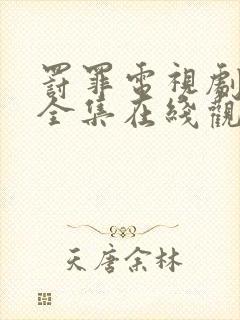 罸罪電視劇
全集在綫觀
天唐余林